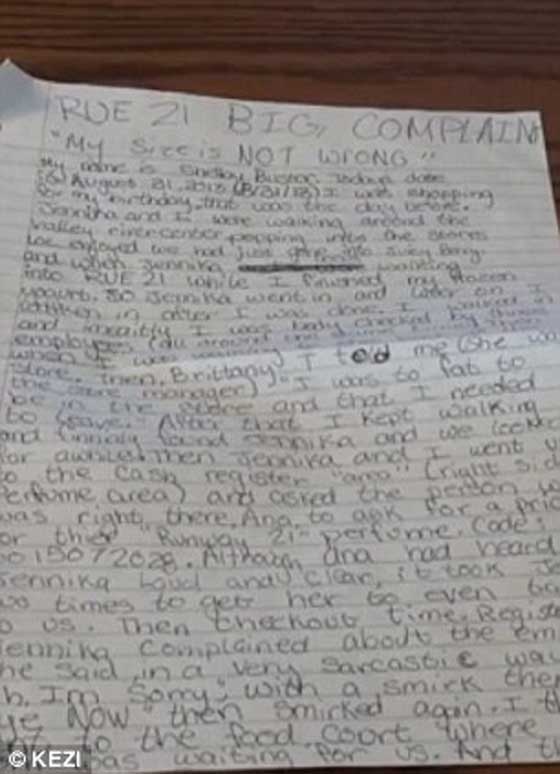 RUE 21 BIG, COMPLAIN
"MY Size is NOT WRONG"
My name is Shelby Buster. Todays date
is August 31, 2013 (8/31/13) I was shopping
for my birthday that was the day before.
Jennika and I were walking around the
valley rivercenter popping into the stores
we enjoyed we had just Juicy Berry
and when Jennika walking
into RUE 21 while I finished my frozen
yogurt. So Jennika went in and later on I
in after I was done. I walked in
and I was body checked by three
employees
when I told me (she wa
store. Then, Brittany,
the store manager) "I was to fat to
be in the store and that I needed
to leave." After that I kept walking
and finnaly found Jennika and we looked
for awhile. Then Jennika and I went
o the cash register "area" (right sid
erfume area) and asked the person
was right there, Ana, to ask for a pri
or thier "Runway 21" perfume. Code:
0015072028. Although ana had heard
Jennika Loud and Clear, it took Je
wo times to get her to even
o us. Then checkout time. Regis
Jennika Complained about the em
he said in a very sarcastic wa
h, I'm sorry," with a smirk then
ye NOW" then smirked again. I t
to the food court where
was waiting for us. And t
© KEZI